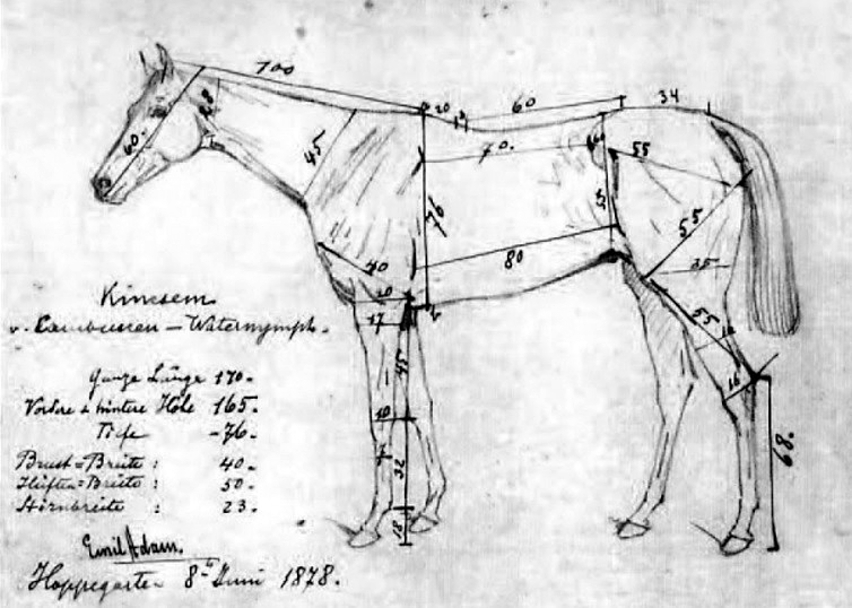 700
20
60
34
60.
28
45
70.
55
76
55
40
80
35
20
17
55
45
16
10
7
32
68.
18
Kincsem
v. Cambuscan – Waternymph.
Ganze Länge 170.
Vordere & hintere Höhe 165.
Tiefe -76.
Brust=Breite : 40.
Hüften=Breite : 50.
Stirnbreite : 23.
Emil Adam.
Hoppegarten 8ten Juni 1878.